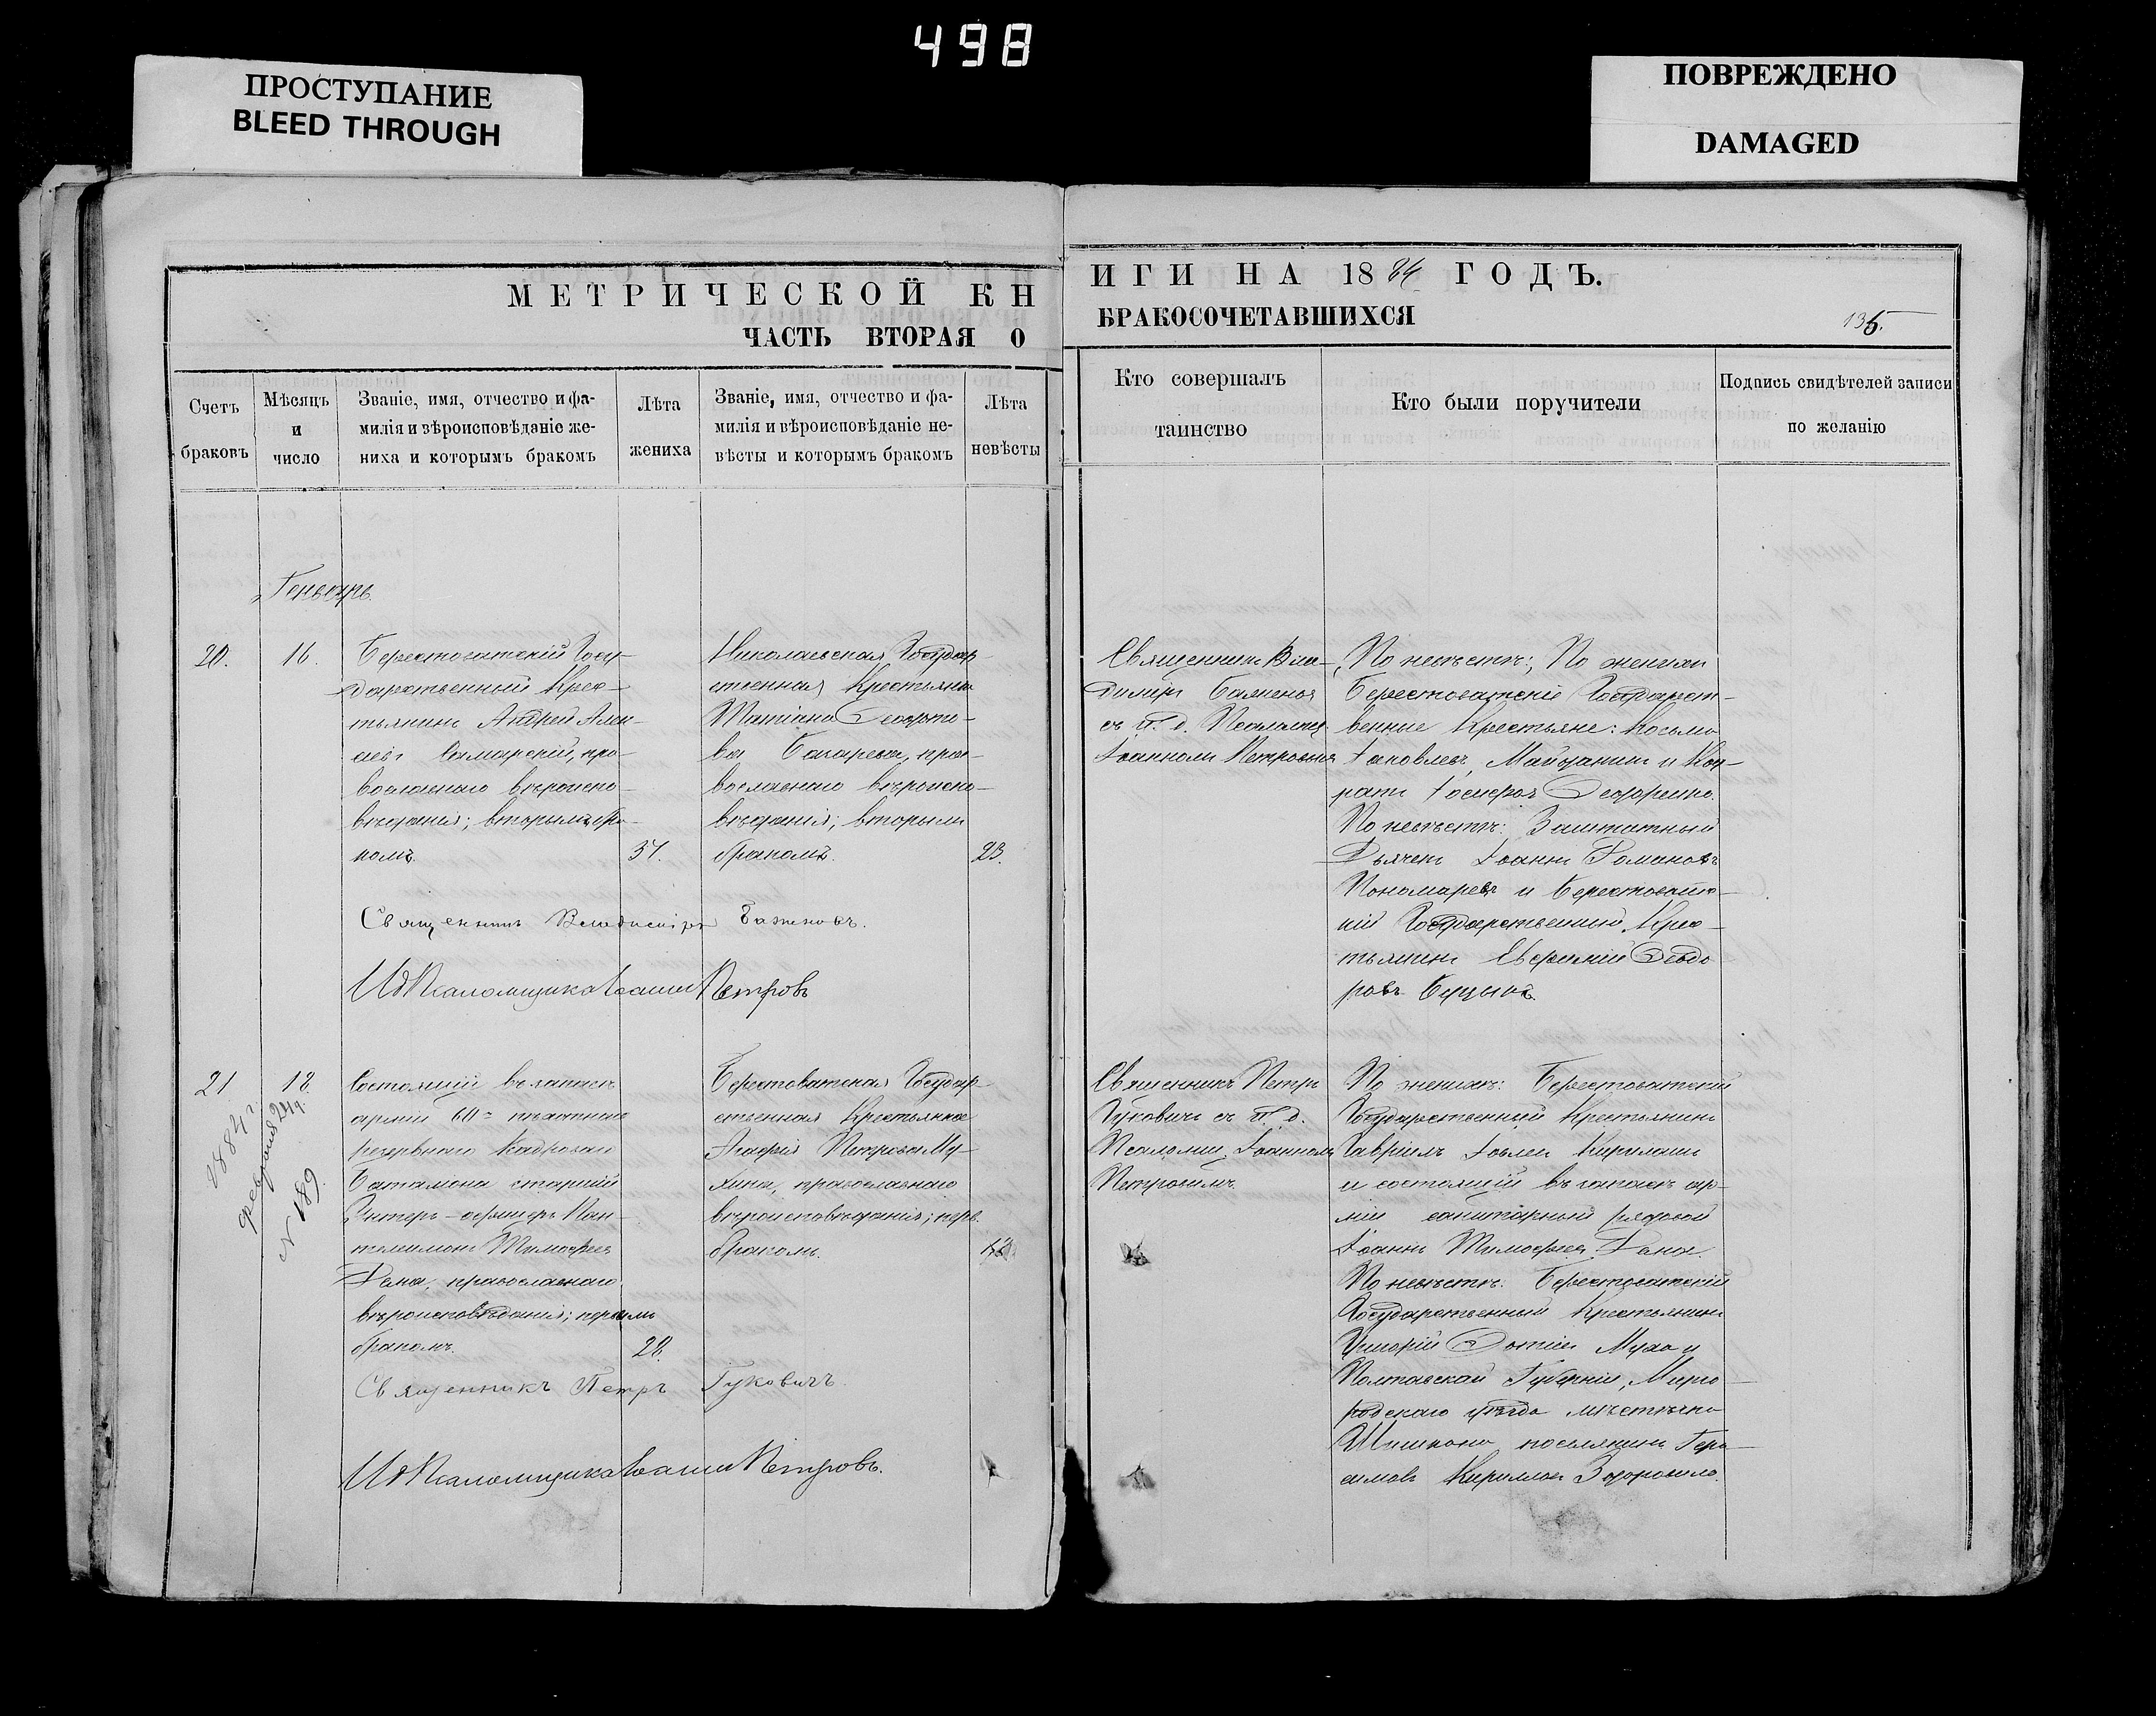 498
ПРОСТУПАНИЕ
BLEED THROUGH
ПОВРЕЖДЕНО
DAMAGED
МЕТРИЧЕСКОЙ КН
ЧАСТЬ ВТОРАЯ О
ИГИ НА 1884 ГОДЪ.
БРАКОСОЧЕТАВШИХСЯ
135.
Счетъ
браковъ
Мѣсяцъ
и
число
Званіе, имя, отчество и фа-
милія и вѣроисповѣданіе же-
ниха и которымъ бракомъ
Лѣта
жениха
Званіе, имя, отчество и фа-
милія и вѣроисповѣданіе не-
вѣсты и которымъ бракомъ
Лѣта
невѣсты
Кто совершалъ
таинство
Кто были поручители
Подпись свидѣтелей записи
по желанію
Геньварь
20.
16.
Берестоватскій Госу-
дарственный Крес-
тьянинъ Андрей Алек-
Самарскій, пра-
вославнаго вѣроиспо-
вѣданія; вторымъ бра-
комъ.
37.
Николаевская Государ-
ственная Крестьянка
Татіана
пра-
вославнаго вѣроиспо-
вѣданія; вторымъ
бракомъ.
23.
Священникъ Вла-
диміръ Баженовъ
съ и. д. Псаломщ.
Іоанномъ Петровымъ
По невѣстѣ: По женихѣ
Берестоватскіе Государст-
венные Крестьяне: Косьма
Іаковлевъ и Кон-
дратъ Іосифовъ
По невѣстѣ: Заштатный
Дьячекъ Іоаннъ Романовъ
Пономаревъ и Берестоватс-
кій Государственный Крес-
тьянинъ Евфимій Ѳеодо
ровъ
Священникъ Владиміръ Баженовъ.
И д Псаломщика Іоаннъ Петровъ
21
18.
1884 г.
февраля 24 д.
N 189
Состоящій въ запасѣ
арміи 60го пѣхотнаго
резервнаго Кадроваго
Баталіона старшій
Унтеръ-офицеръ Пан-
телеимонъ Тимофеевъ
православнаго
вѣроисповѣданія; первымъ
бракомъ.
28.
Берестоватская Государ-
ственная Крестьянка
Агафія Петрова Му-
хина, православнаго
вѣроисповѣданія; перв.
бракомъ.
Священникъ Петръ
Гуковичъ съ и. д.
Псаломщ. Іоанномъ
Петровымъ.
По женихѣ: Берестоватскій
Государственный Крестьянинъ
Гавріилъ
и состоящій въ запасѣ ар-
міи санитарный рядовой
Іоаннъ Тимофеевъ
По невѣстѣ: Берестоватскій
Государственный Крестьянинъ
Григорій Муха и
Полтавской Губерніи, Мирго-
родскаго уѣзда мѣстечка
Шишака поселянинъ Гера-
симовъ Кирилловъ
Священникъ Петръ Гуковичъ.
И д Псаломщика Іоаннъ Петровъ.